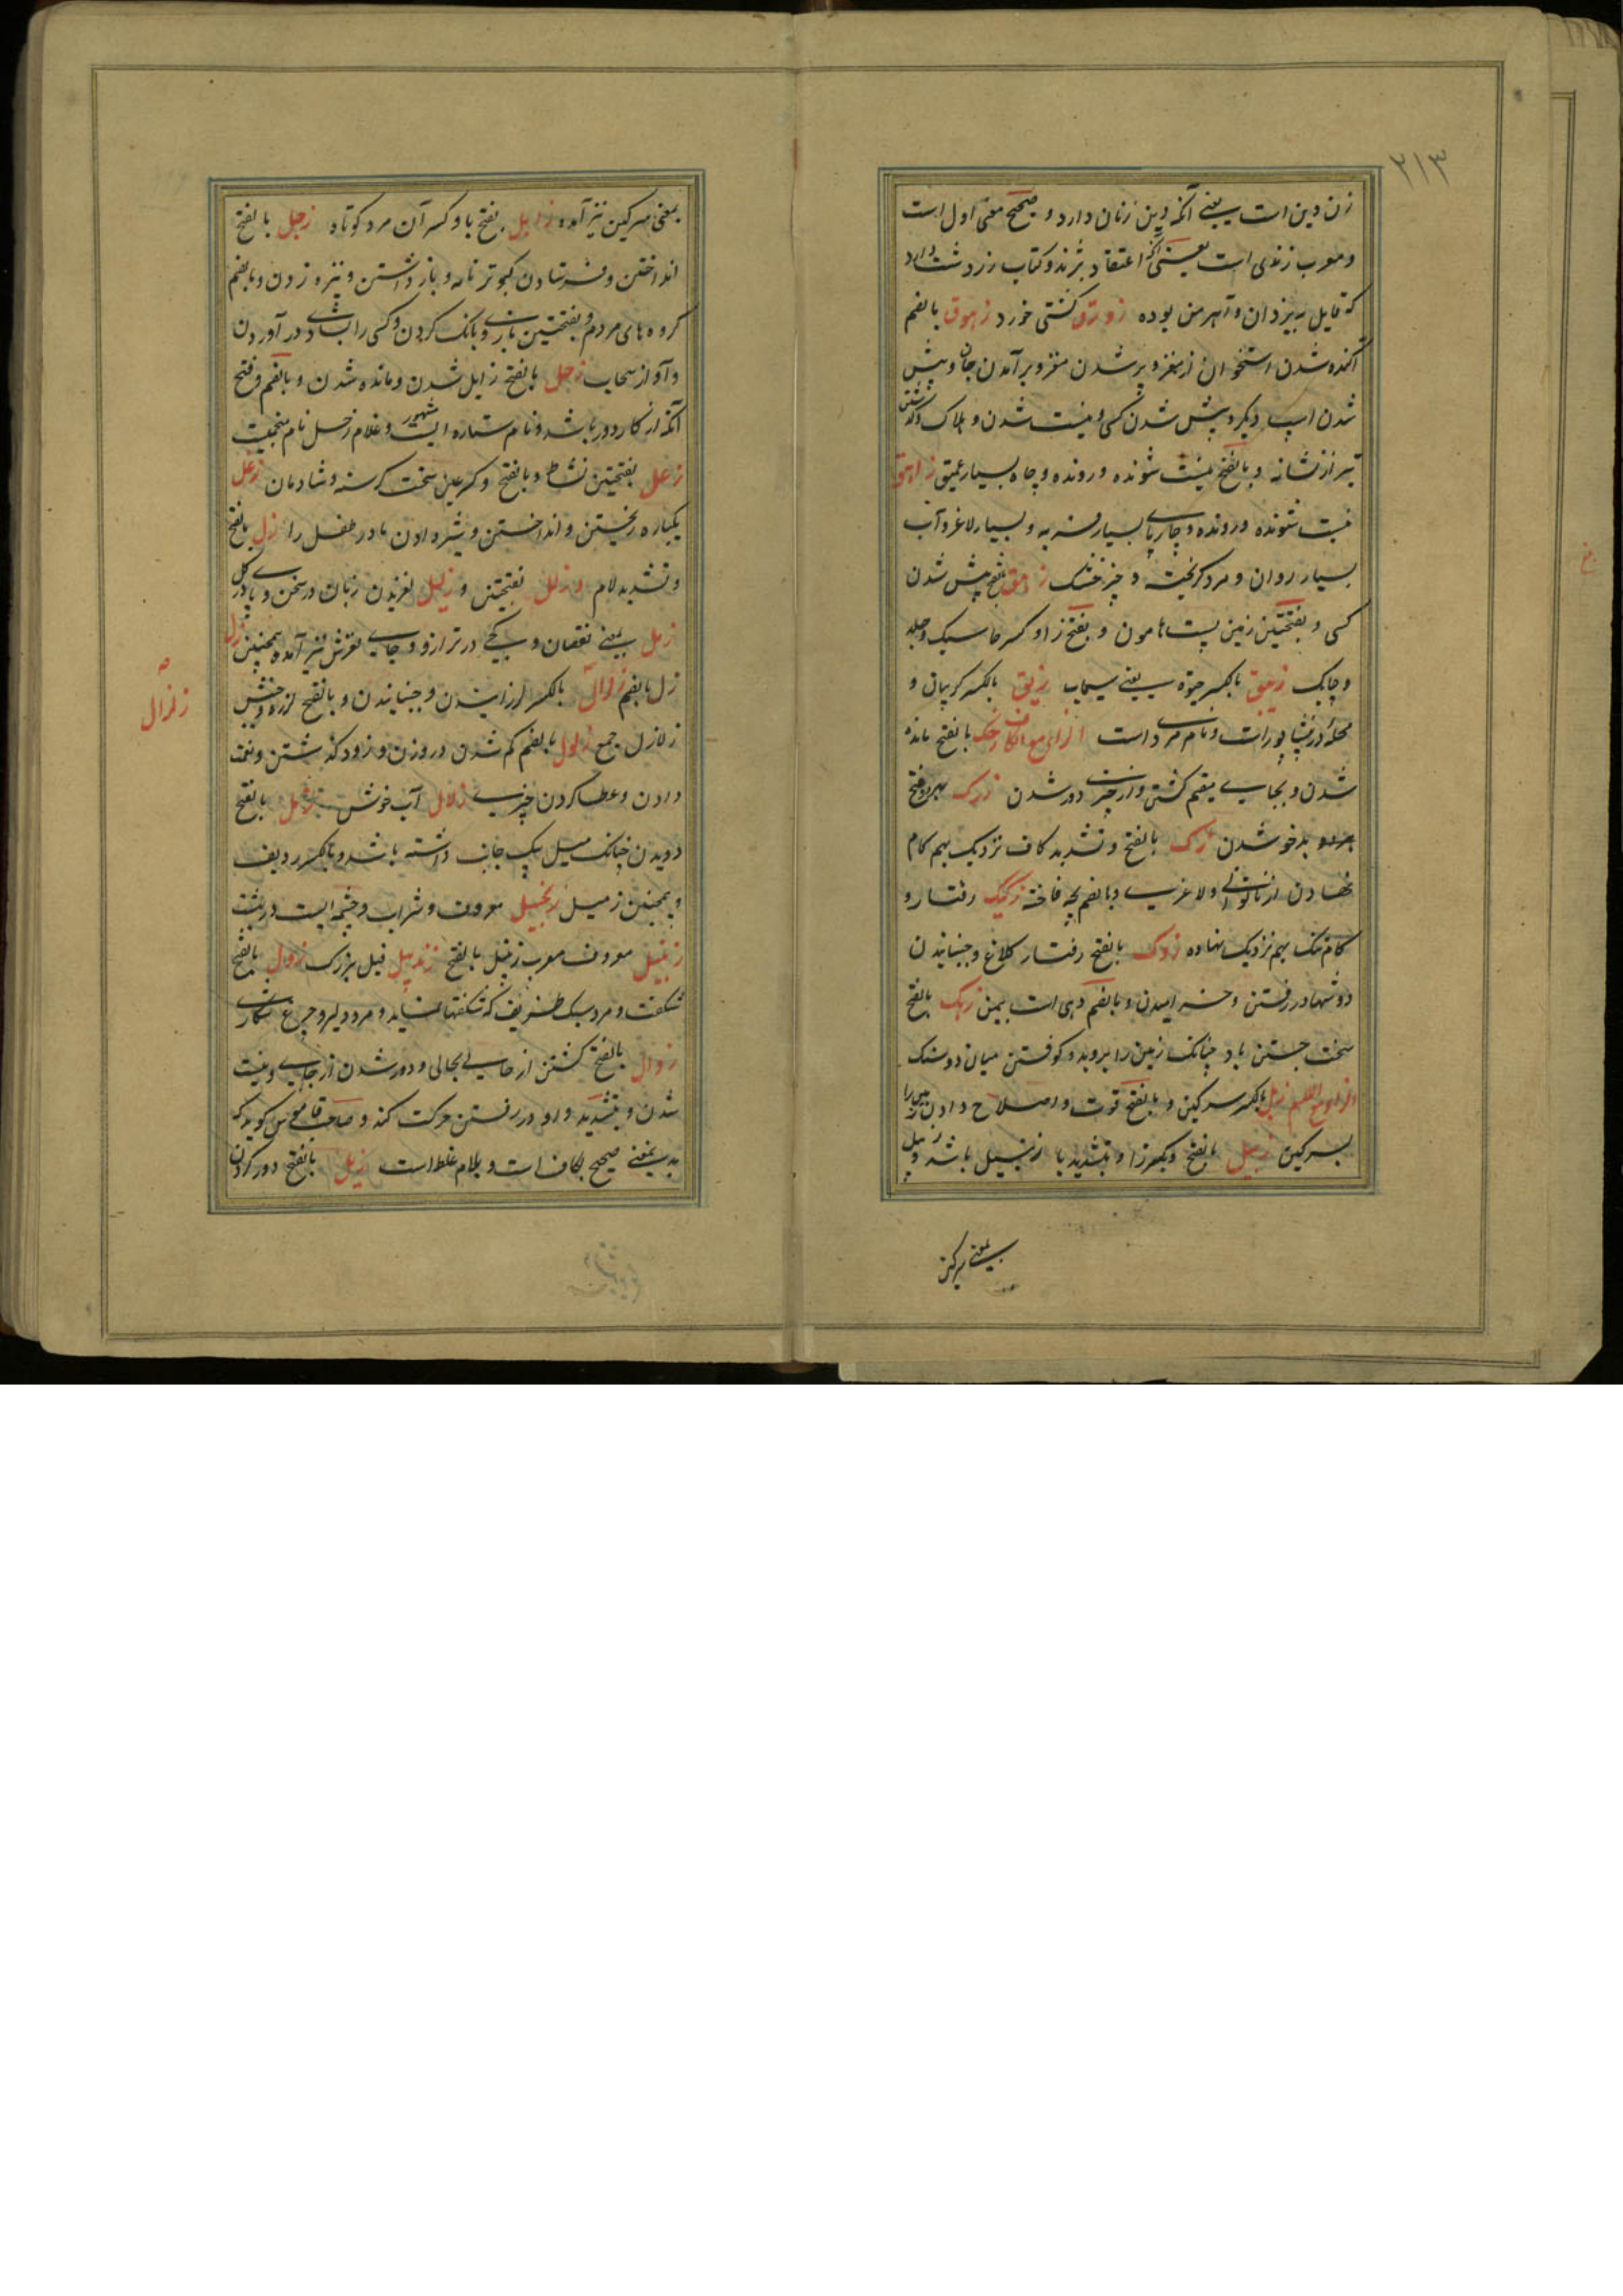 ۲۱۳
زن دین است یعنی آنکه دین زنان دارد و صحیح معنی اول است
و معرب زندی است یعنی آنکه اعتقاد بزند و کتاب زردشت دارد
که قایل بیزدان و آهرمن بوده زورق کشتی خورد زهوق بالضم
آکنده شدن استخوان از مغز و پر شدن مغز و برآمدن جان و پیش
شدن اسپ دیگر و پیش شدن کسی و نیست شدن و هلاک و گذشتن
تیر از نشانه و بالفتح نیست شونده و رونده و چاه بسیار عمیق زاهق
نیست شونده و رونده و چارپای بسیار فربه و بسیار لاغر و آب
بسیار روان و مرد گریخته و چیز خشک زهق بالفتح پیش شدن
کسی و بفتحتین زمین پست هامون و بفتح زا و کسر ها سبک و جلد
و چابک زیبق بالکسر جیوه یعنی سیماب زیق بالکسر گریبان و
محله در نیشاپور است و نام مردی است الزای مع الکاف زحک بالفتح مانده
شدن و بجایی مقیم گشتن و از چیزی دور شدن زرک بهر دو فتح
بدخو شدن زک بالفتح و تشدید کاف نزدیک بهم گام
نهادن از ناتوانی و لاغری و بالضم بچه فاخته زکیک رفتار و
گام تنک بهم نزدیک نهاده زوک بالفتح رفتار کلاغ و جنبانیدن
دوشها در رفتن و خرامیدن و بالضم دهی است بیمن زهک بالفتح
سخت جستن باد چنانک زمین را بروبد و کوفتن میان دو سنک
الزای مع اللام زبل بالکسر سرکین و بالفتح قوت و اصلاح دادن زمین را
بسرکین زبیل بالفتح و بکسر زا و بتشدید با زنبیل باشد و
بمعنی سرکین
بمعنی سرکین نیز آمده زابل بفتح با و کسر آن مرد کوتاه زجل بالفتح
انداختن و فرستادن کبوتر نامه و باز داشتن و نیزه زدن و بالضم
گروه های مردم و بفتحتین بازی و بانک کردن و کسی را بشادی در آوردن
و آواز سحاب زحل بالفتح زایل شدن و مانده شدن و بالضم و فتح
آنکه از کار دور باشد و نام ستاره ایست مشهور و غلام زحل نام منجمیست
زعل بفتحتین نشاط و بالفتح و کسر عین سخت گرسنه و شادمان زغل
یکباره ریختن و انداختن و شیر دادن مادر طفل را زل بالفتح
و تشدید لام و زلل بفتحتین و زلیل لغزیدن زبان در سخن و پای در گل
زلل بمعنی نقصان و کجی در ترازو و جای لغزش نیز آمده همچنین زل
زل بالضم زلزال بالکسر لرزانیدن و جنبانیدن و بالفتح لرزه و جنبش
زلزال
زلازل جمع زلول بالضم کم شدن در وزن و زود گذشتن و نعمت
دادن و عطا کردن چیزی زلال آب خوش زمل بالفتح
دویدن چنانک میل بیک جانب داشته باشد و بالکسر ردیف
و همچنین زمیل زنجبیل معروف و شراب و چشمه ایست در بهشت
زنبیل معروف معرب زنبیل بالفتح زندبیل فیل بزرک زول بالفتح
شکفت و مرد سبک ظریف که شکفتها نماید و مرد دلیر و چرغ شکاری
زوال بالفتح گشتن از حالی بحالی و دور شدن از جایی و نیست
شدن و بتشدید واو در رفتن حرکت کند و صاحب قاموس گوید که
بدین معنی صحیح بکاف است و بلام غلط است زیل بالفتح دور کردن